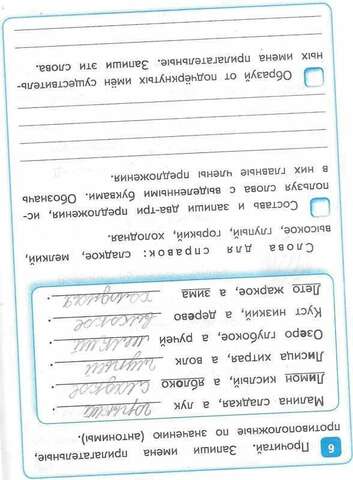 6 Прочитай. Запиши имена прилагательные,
противоположные по значению (антонимы).
Малина сладкая, а лук горький.
Лимон кислый, а яблоко сладкое.
Лисица хитрая, а волк глупый.
Озеро глубокое, а ручей мелкий.
Куст низкий, а дерево высокое.
Лето жаркое, а зима холодная.
Слова для справок: сладкое, мелкий,
высокое, глупый, горький, холодная.
Составь и запиши два-три предложения, ис-
пользуя слова с выделенными буквами. Обозначь
в них главные члены предложения.
Образуй от подчёркнутых имён существитель-
ных имена прилагательные. Запиши эти слова.